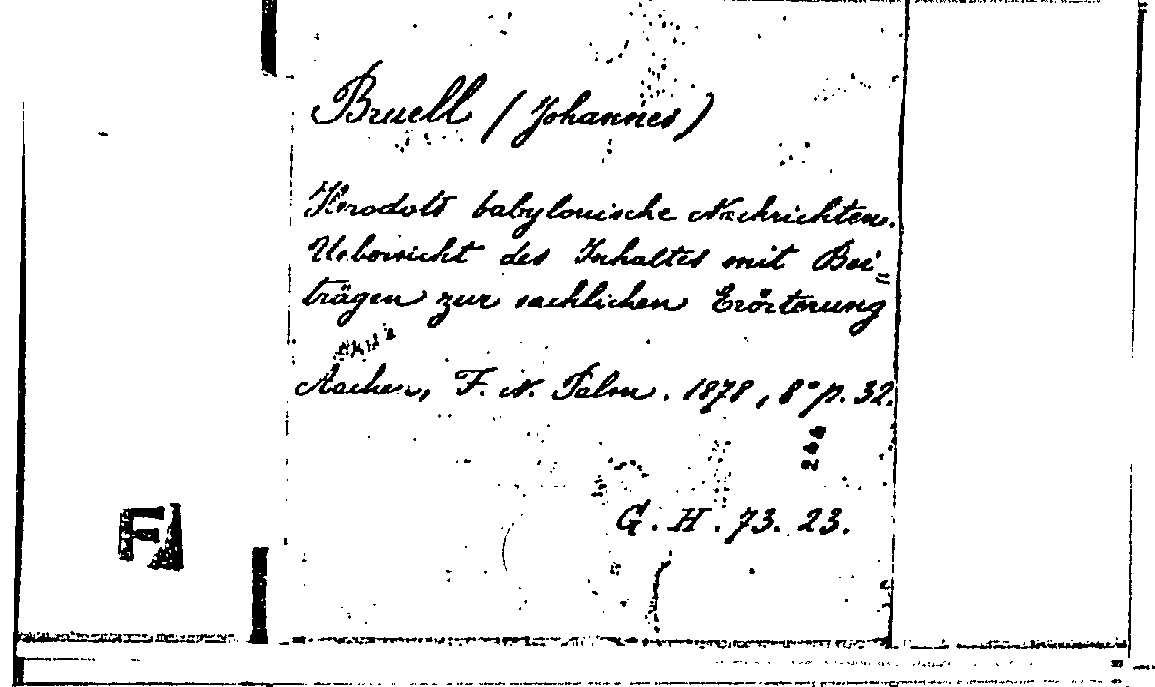 Bruell (Johannes)
Herodots babylonische Nachrichten.
Uebersicht des Inhaltes mit Bei=
trägen zur sachlichen Erörterung
Aachen, F. N. Palm. 1878, 8° p. 32.
G. H. 73. 23.